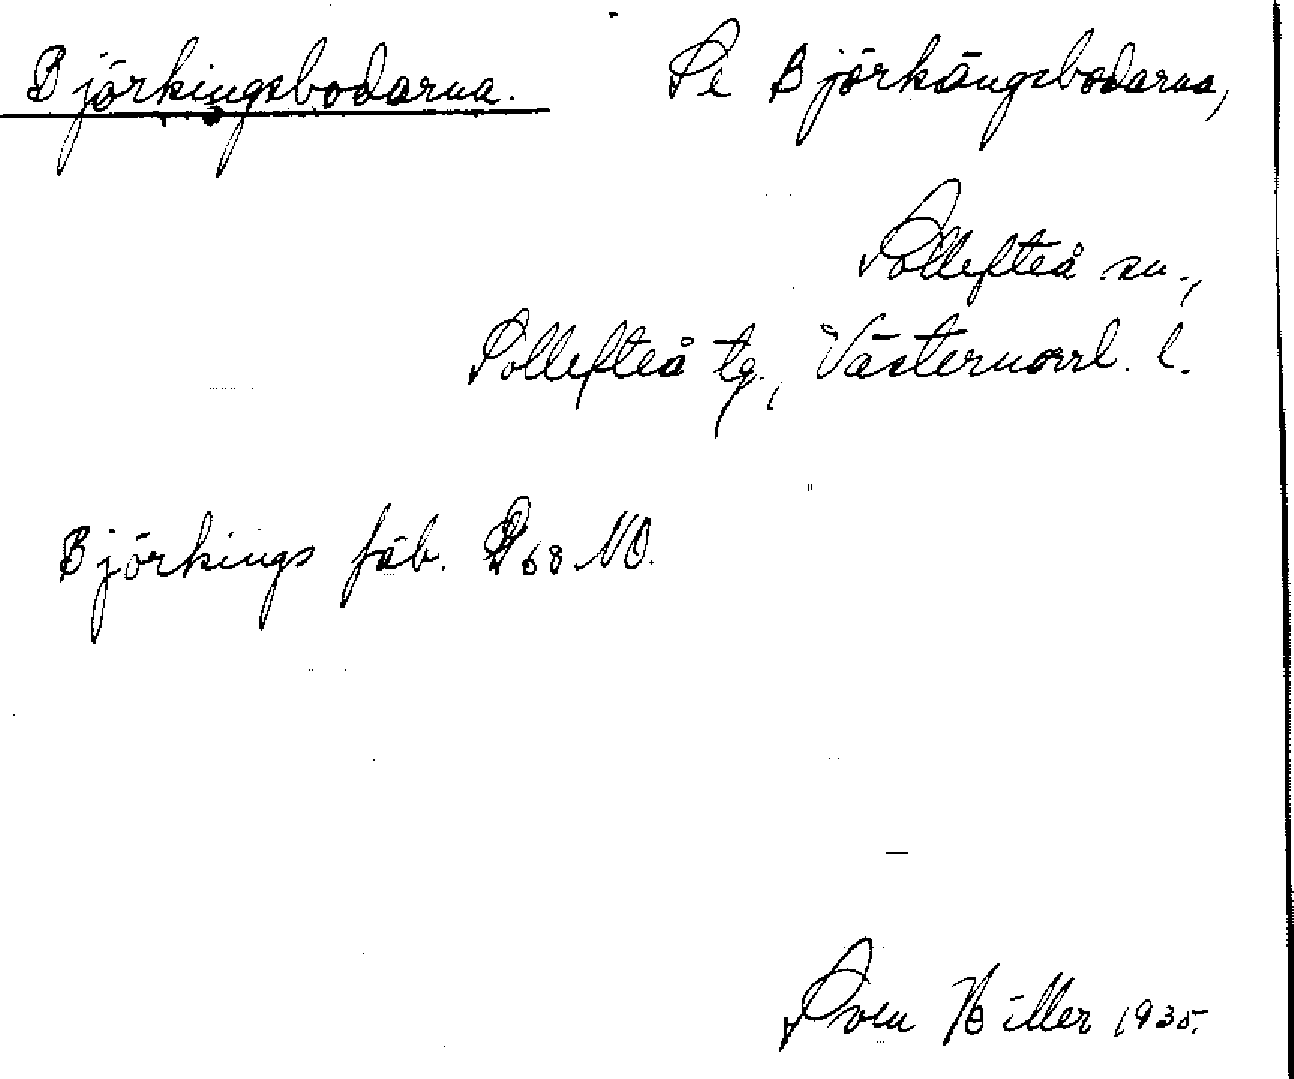 Björkingsbodarna. Se Björkängsbodarna,
Sollefteå sn.,
Sollefteå tg., Västernorrl. l.
Björkings fäb. 68 NO.
Sven Hiller 1935.